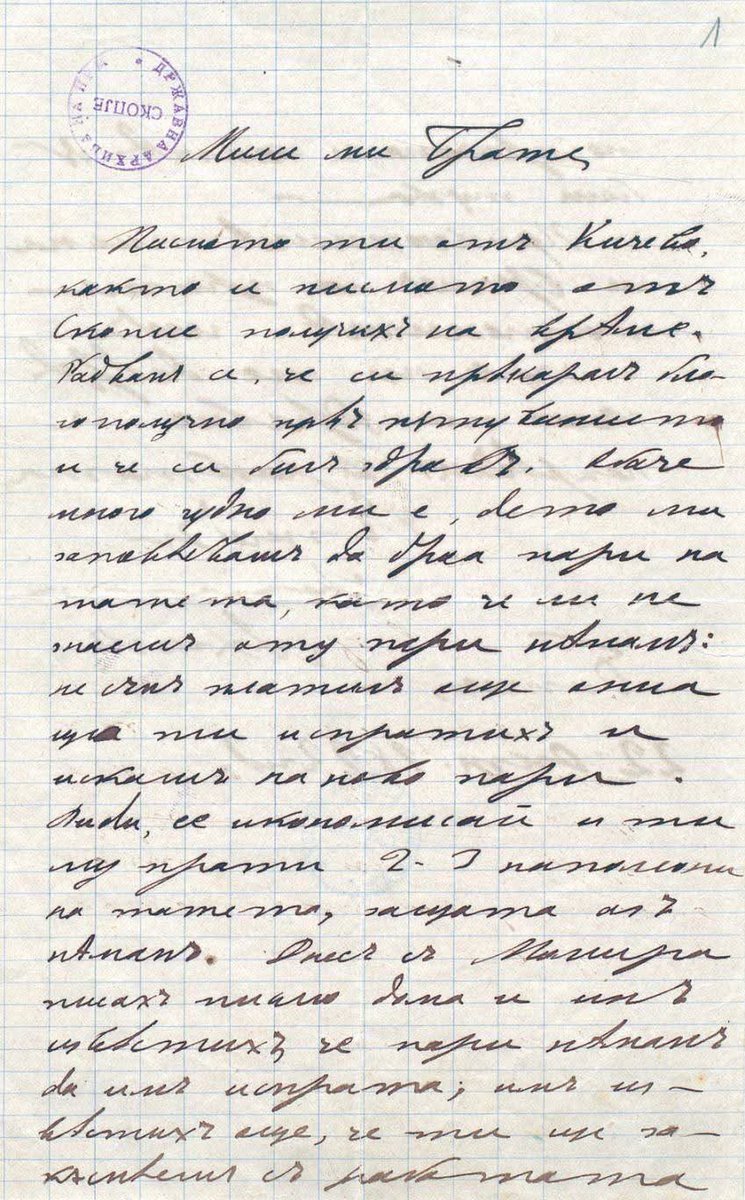 1
ДРЖАВНА АРХИВА НА НРМ
СКОПЈЕ
Мили ми Брате,
Писмото ти отъ Кичево,
както и писмото отъ
Скопие получихъ на врѣме.
Радвамъ се, че си прѣкаралъ бла-
гополучно прѣзъ пѫтуванието
и че си билъ здравъ. Обаче
много чудно ми е, дето ми
заповѣдвашъ да праа пари на
татета, като че ли не
знаешъ оту пари нѣмамъ:
не съмъ платилъ още ониа
що ти испратихъ и
искашъ на ново пари.
Види, се икономисай и ти
му прати 2-3 наполеони
на татета, защото азъ
нѣмамъ. Днесъ съ
писахъ писмо дома и имъ
извѣстихъ, че пари нѣмамъ
да имъ испратa; имъ из-
вѣстихъ още, че ти ще за-
къснѣешъ съ работата